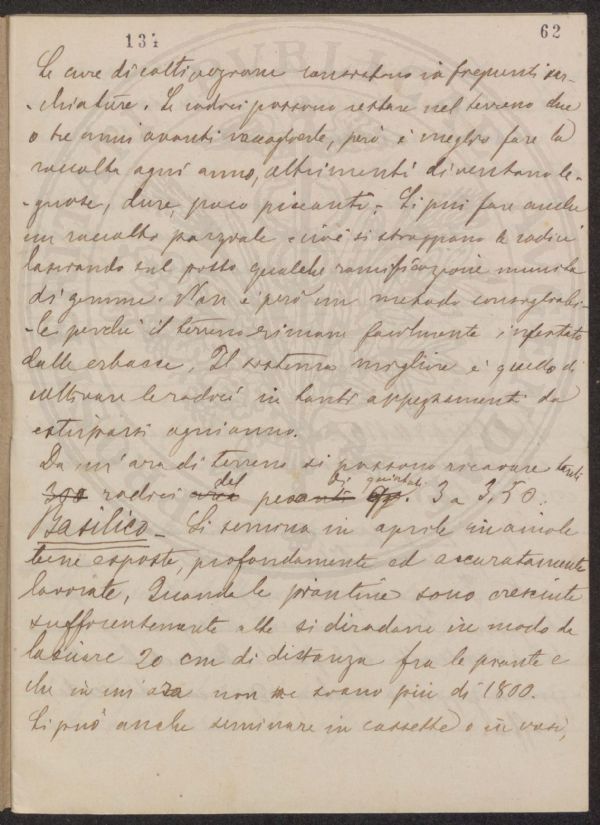 134
62
Le cure di coltivazione consistono in frequenti sar-
-chiature. Le radici possono restare nel terreno due
o tre anni avanti raccoglierle, però è meglio fare la
raccolta ogni anno, altrimenti diventano le-
-gnose, dure, poco piccanti. Si può fare anche
un raccolto parziale cioè si strappano le radici
lasciando sul posto qualche ramificazione munita
di gemme. Non è però un metodo consigliabi-
-le perchè il terreno rimane facilmente infestato
dalle erbacce. Il sistema migliore è quello di
coltivare le radici in tanti appezzamenti da
estirparsi ogni anno.
Da un'ara di terreno si possono ricavare tanti
radici del peso di quintali 3 a 3,50.
Basilico - Si semina in aprile in aiole
bene esposte, profondamente ed accuratamente
lavorate. Quando le piantine sono cresciute
sufficientemente alte si diradano in modo da
lasciare 20 cm di distanza fra le piante e
che in un'ara non ne siano più di 1800.
Si può anche seminare in cassette o in vasi,